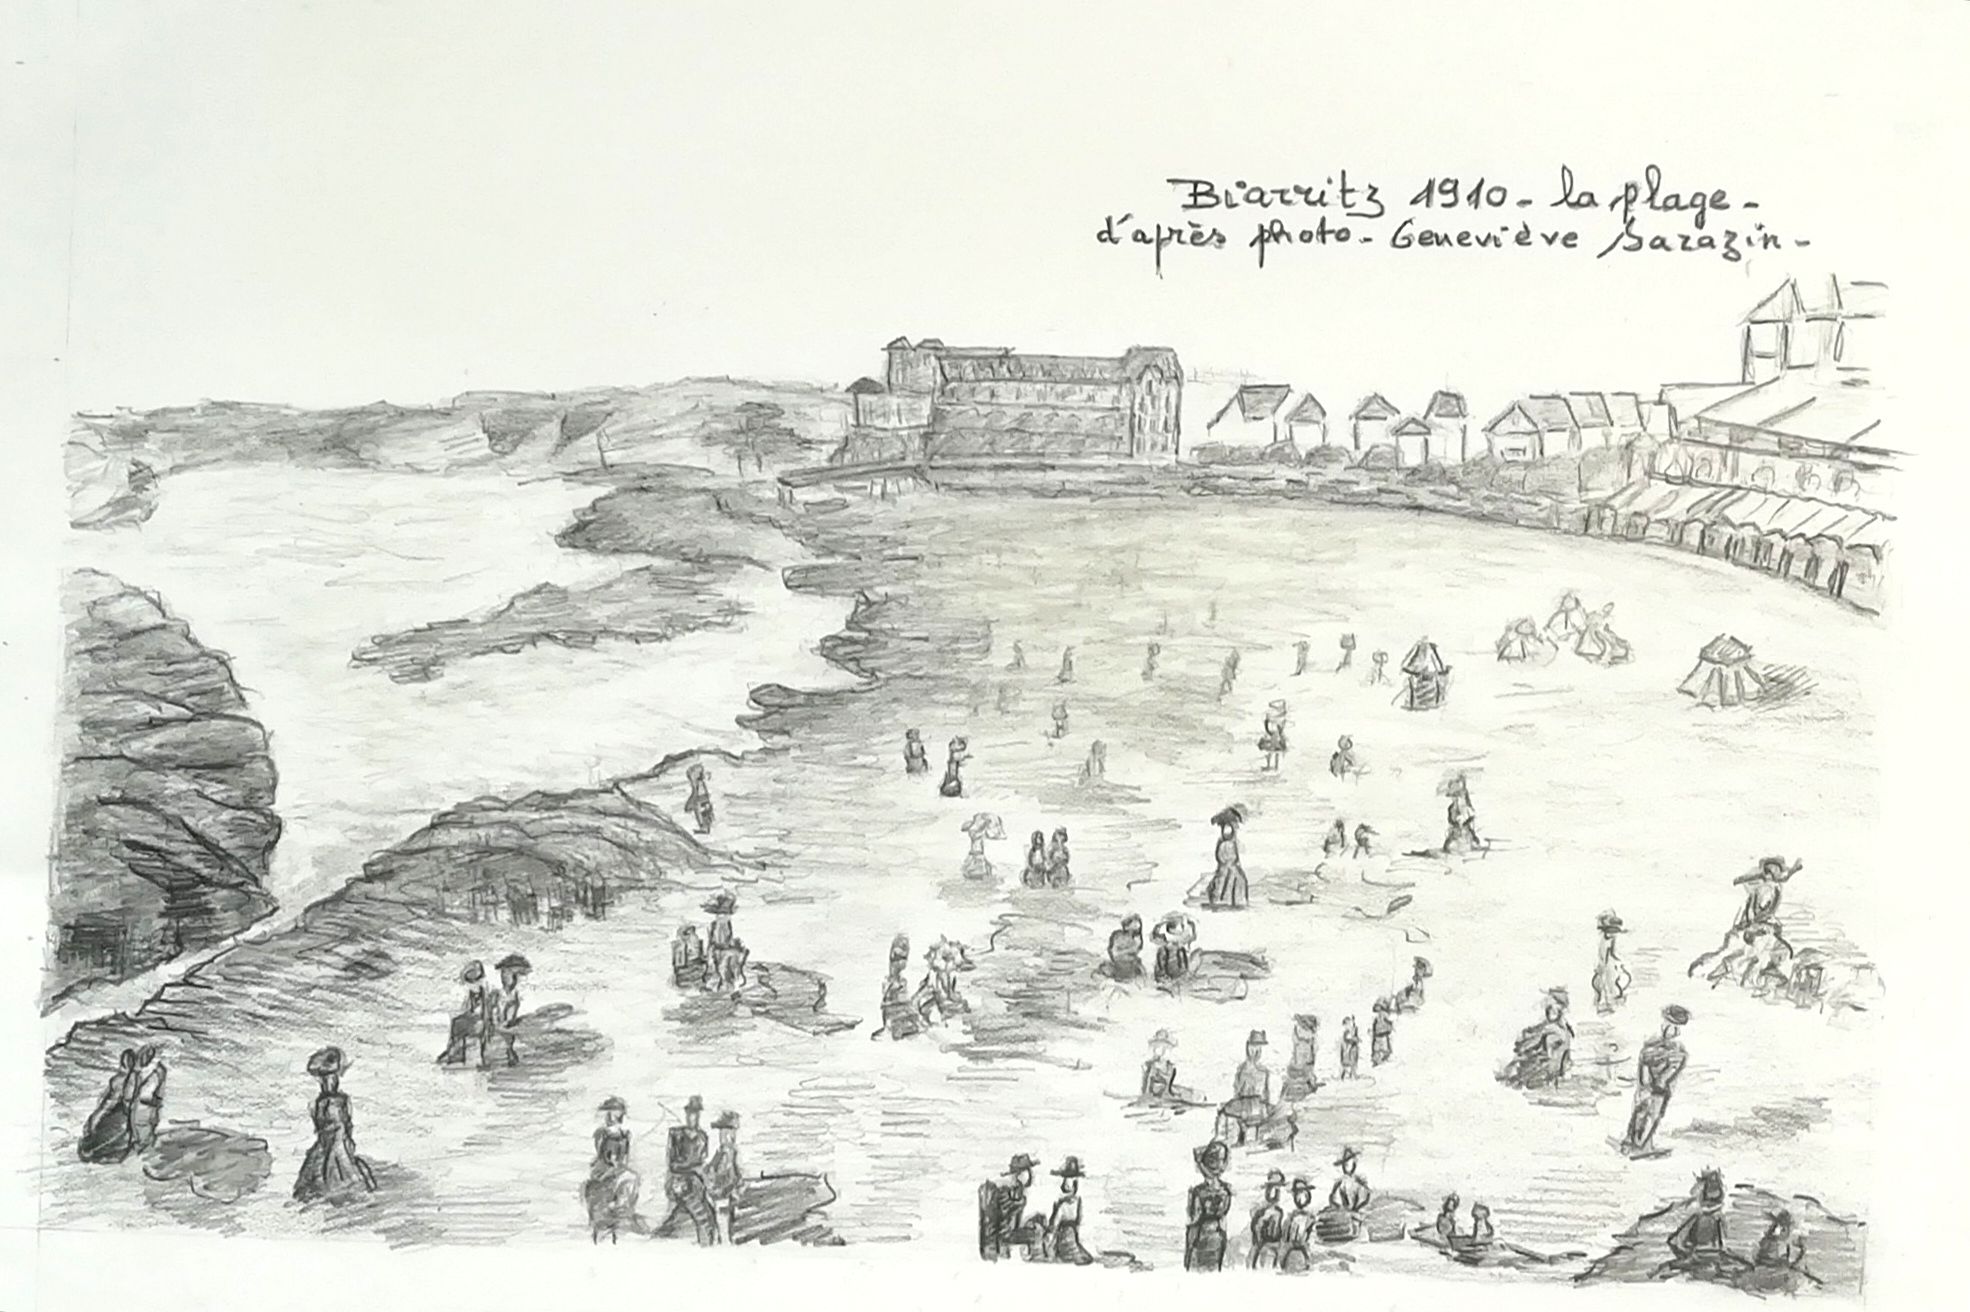 Biarritz 1910 - la plage -
d'après photo - Geneviève Sarazin -